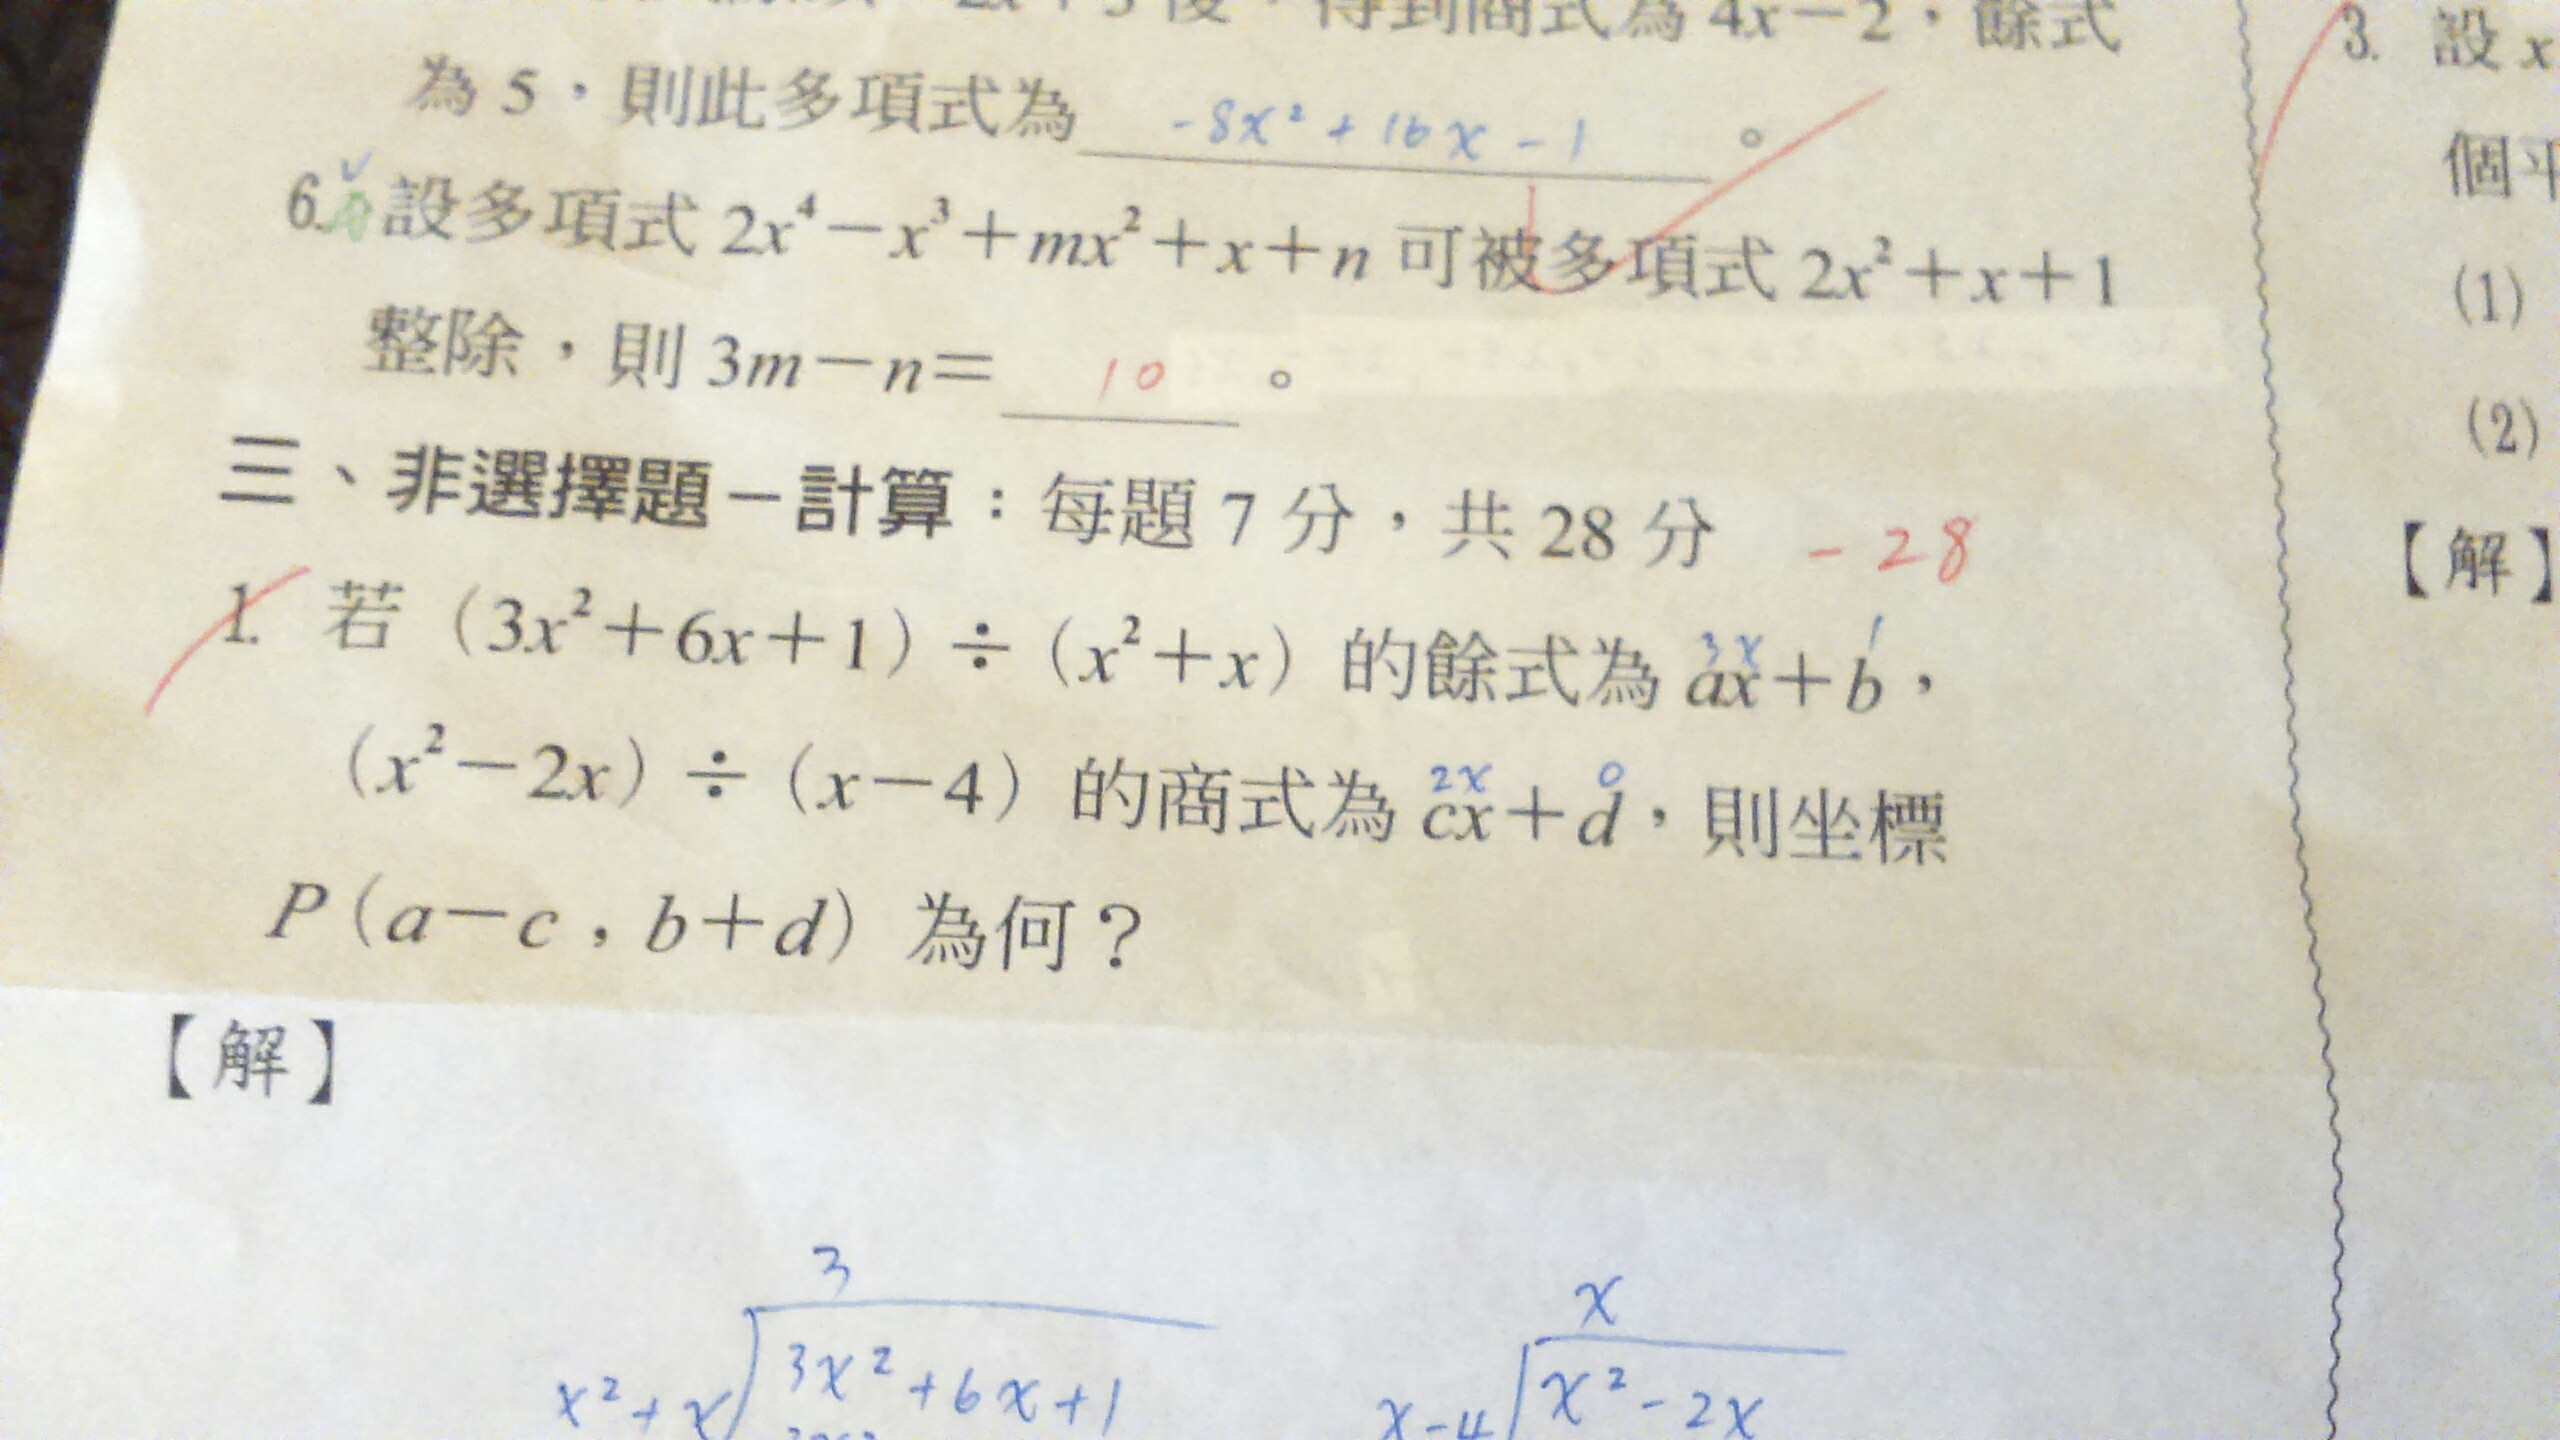 後，得到商式為 4x－2，餘式
為 5，則此多項式為 -8x²+16x-1 。
6. 設多項式 2x⁴－x³＋mx²＋x＋n 可被多項式 2x²＋x＋1
整除，則 3m－n＝ 10 。
三、非選擇題－計算：每題 7 分，共 28 分 -28
1. 若（3x²＋6x＋1）÷（x²＋x）的餘式為 ax＋b，
3x 1
（x²－2x）÷（x－4）的商式為 cx＋d，則坐標
2x 0
P（a－c，b＋d）為何？
【解】
3
x²+x 3x²+6x+1
x
x-4 x²-2x
3. 設 x
個平
(1)
(2)
【解】